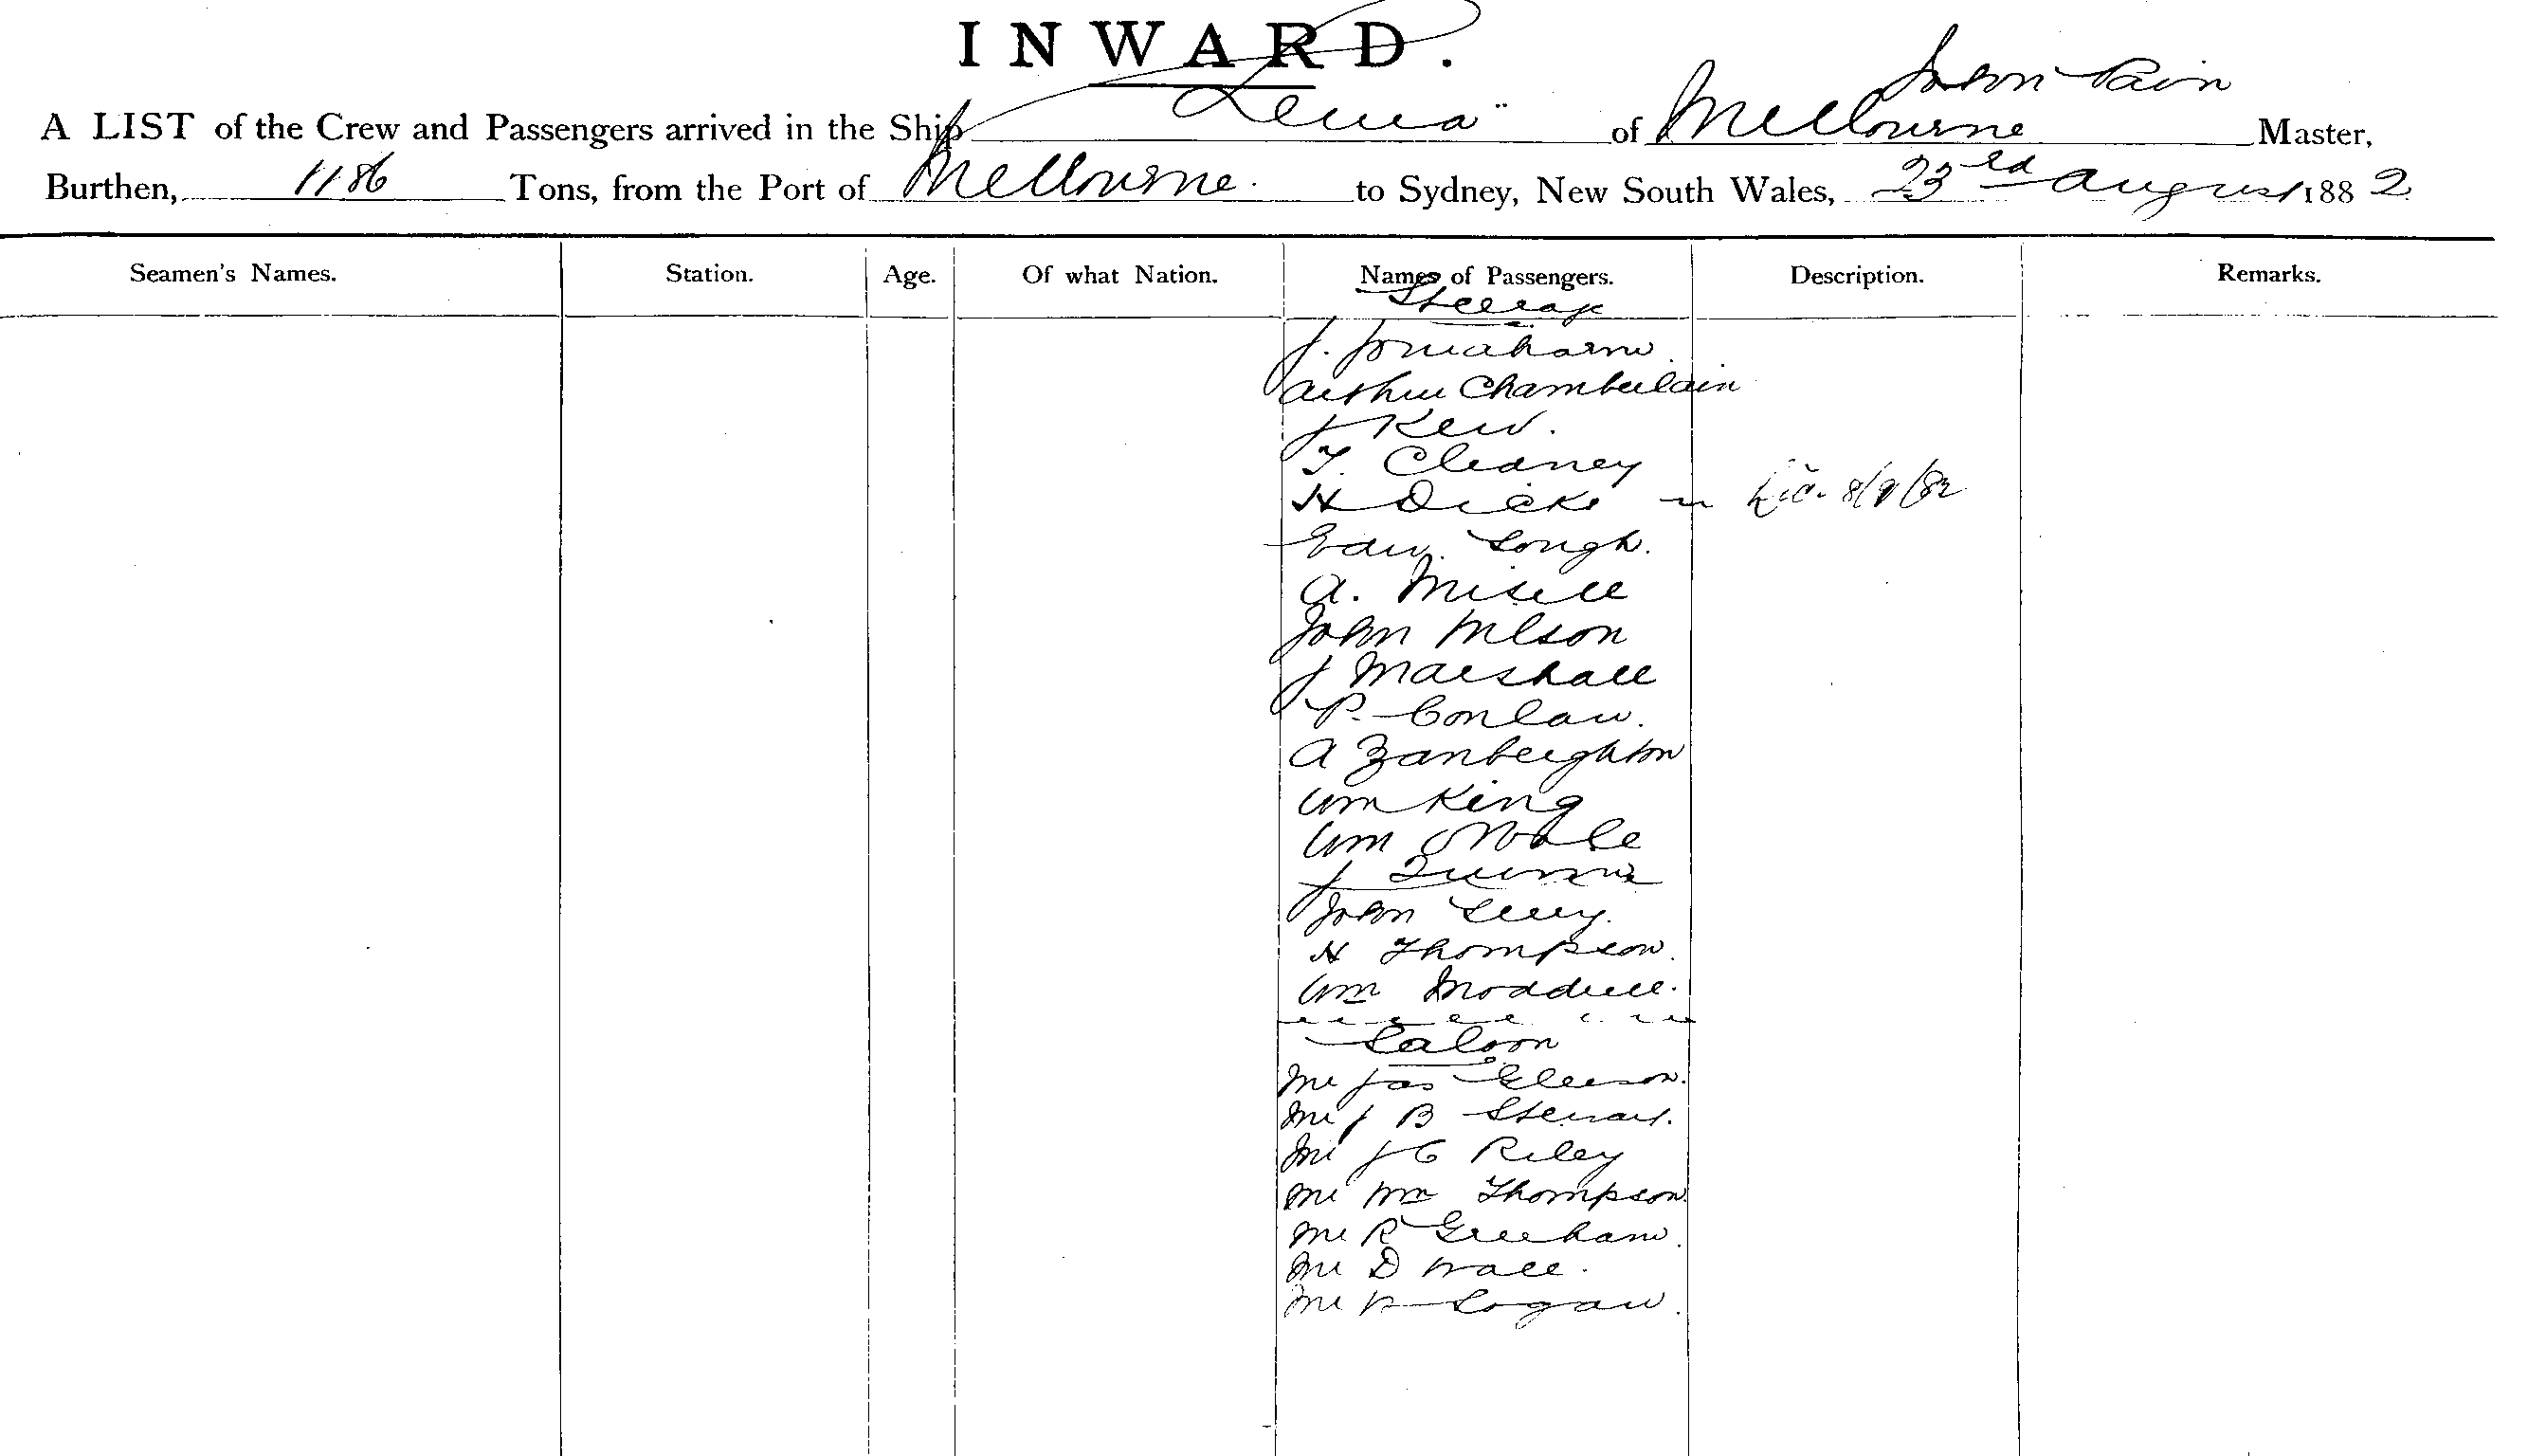 INWARD.
John Pain
A LIST of the Crew and Passengers arrived in the Ship "Leura" of Melbourne Master,
Burthen, 1186 Tons, from the Port of Melbourne. to Sydney, New South Wales, 23rd August 1882
Seamen's Names. Station. Age. Of what Nation. Names of Passengers. Description. Remarks.
Steerage
J.
Arthur Chamberlain
J Kew.
T.
H Dicks 8/9/82
Edw. Lough.
A. Misell
John Wilson
J Marshall
P. Conlan.
A Zanbeighton
Wm King
Wm Noble
J Quinn
John Levy.
H Thompson.
Wm
Saloon
Mr Jas Gleeson.
Mr J B Stewart.
Mr J C Riley
Mr Wm Thompson.
Mr R Greenham.
Mr D Wall.
Mr W Logan.